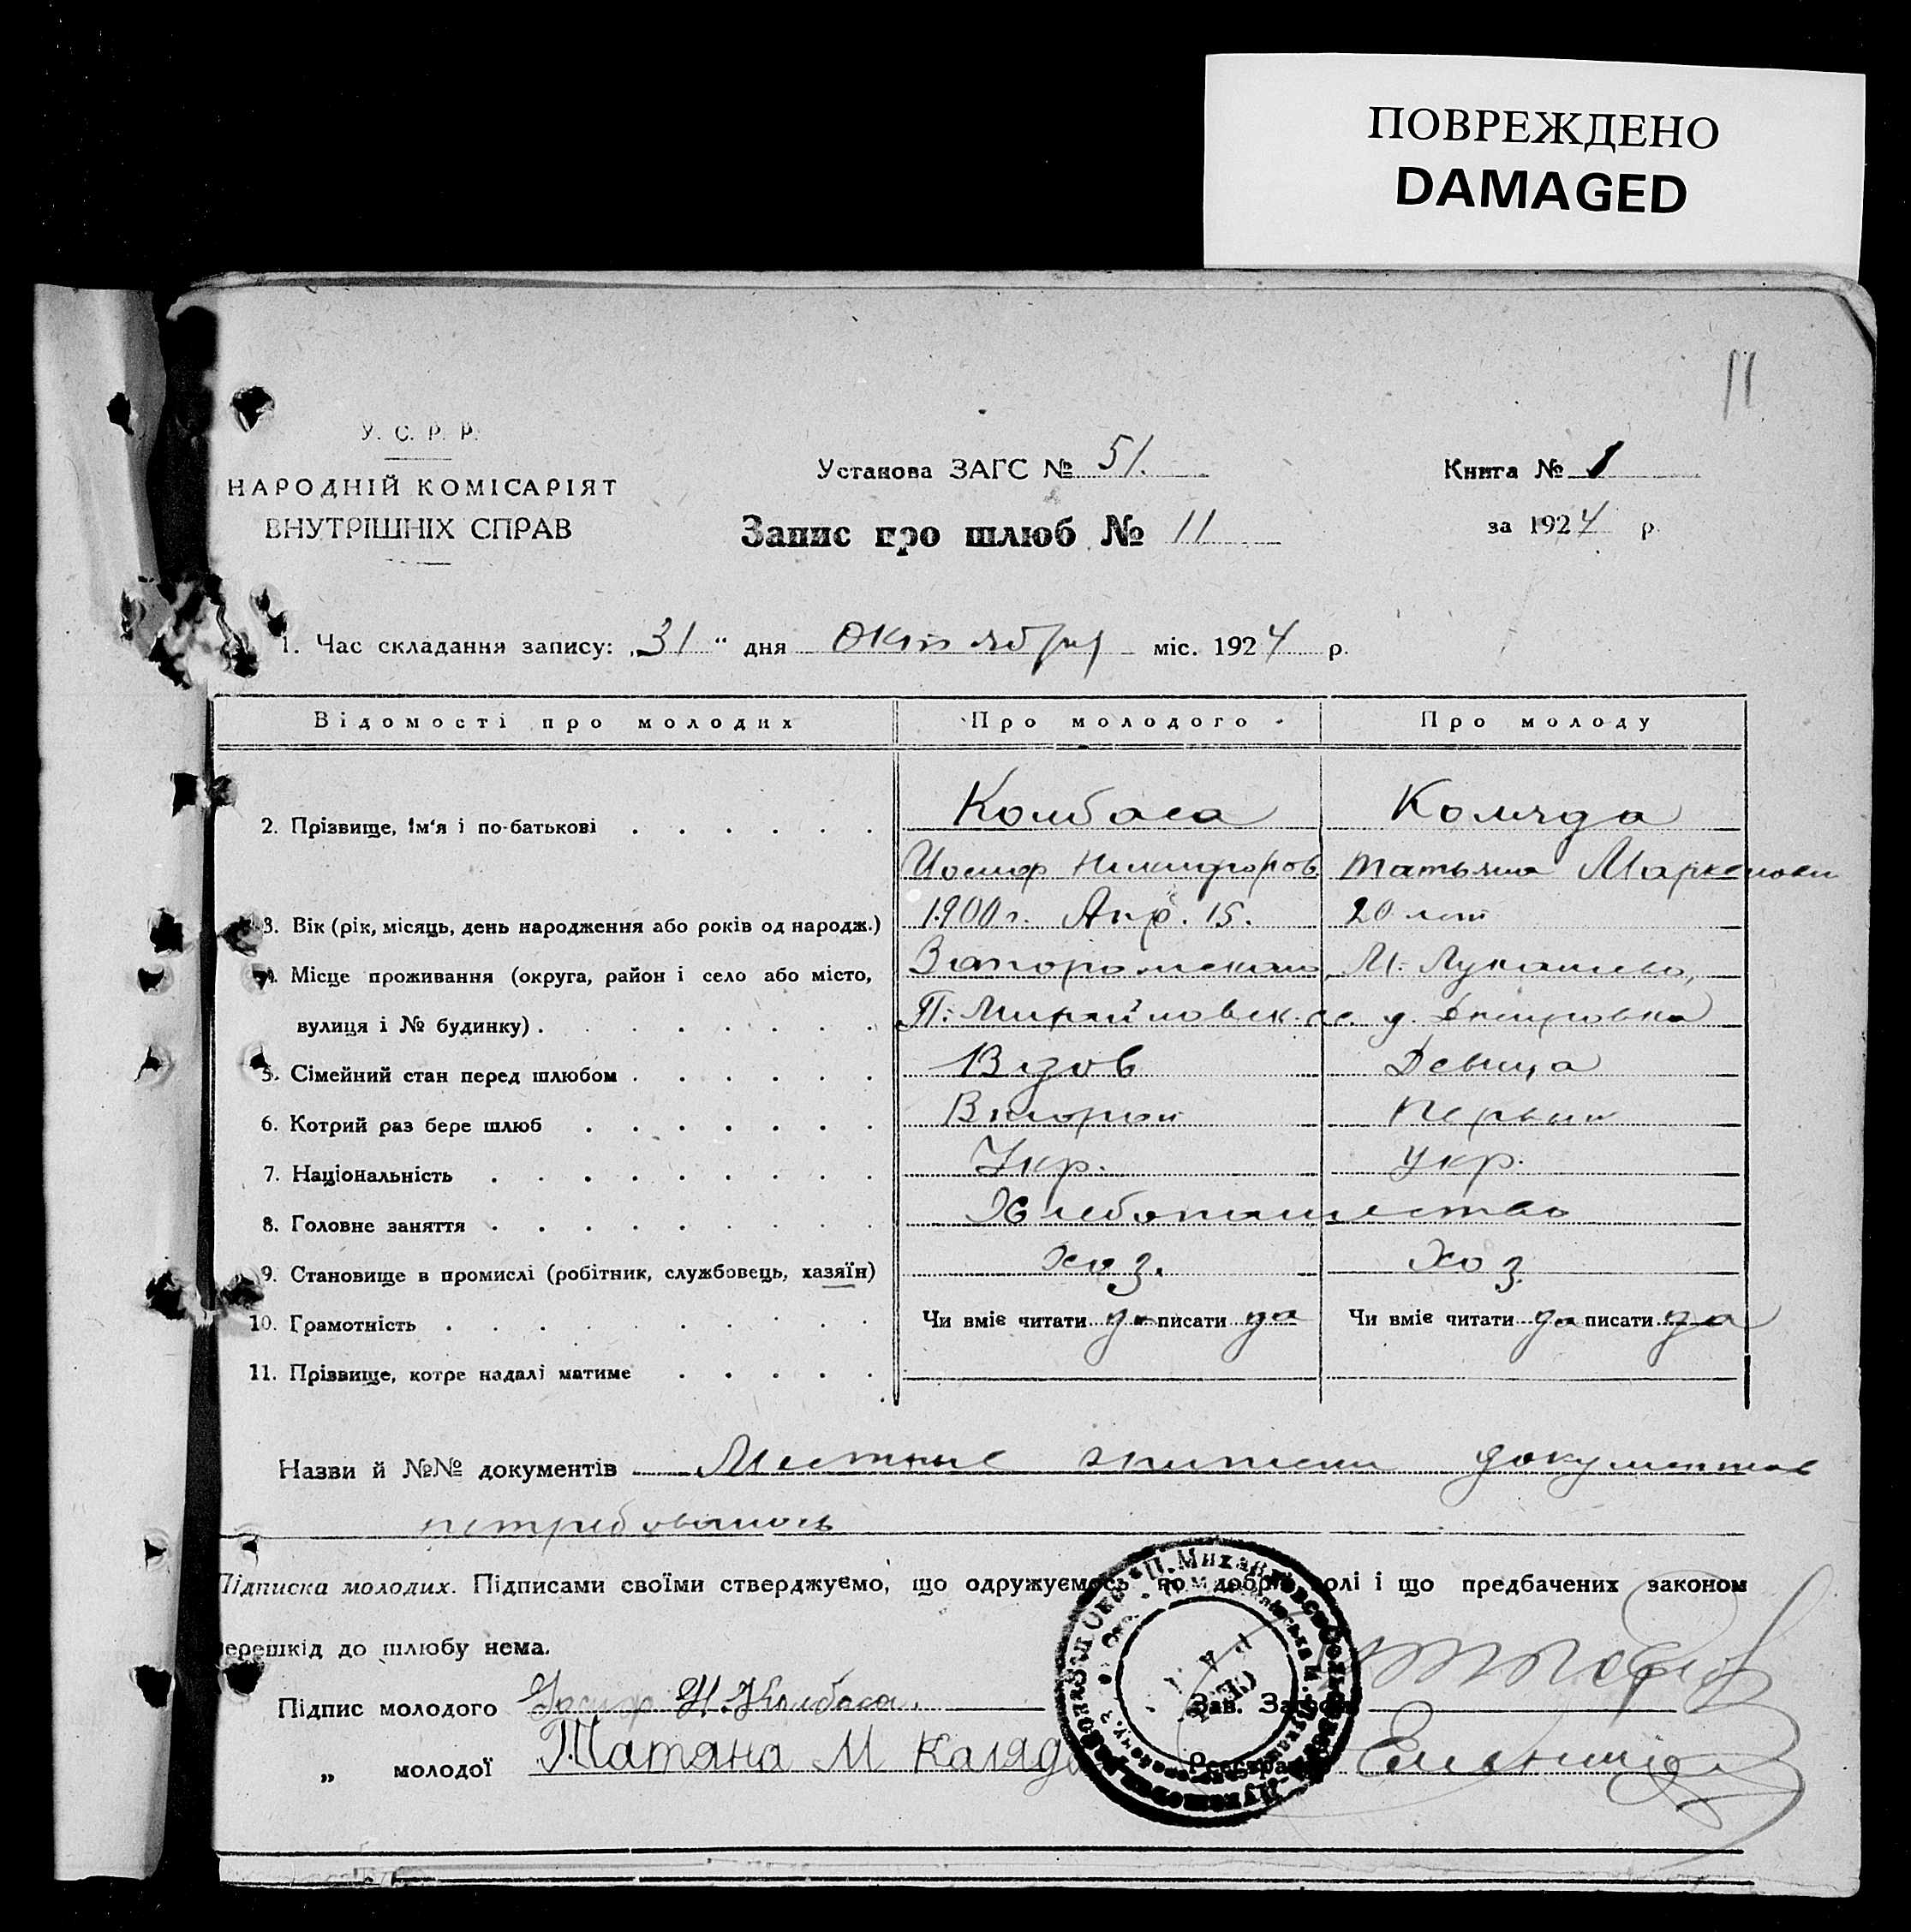 ПОВРЕЖДЕНО
DAMAGED
11
У. С. Р. Р.
НАРОДНІЙ КОМІСАРІЯТ
ВНУТРІШНІХ СПРАВ
Установа ЗАГС № 51.
Запис про шлюб № 11
Книга № 1
за 1924 р.
1. Час складання запису: „31“ дня Октября міс. 1924 р.
Відомості про молодих Про молодого Про молоду
2. Прізвище, ім'я і по-батькові Колбаса Коляда
Иосиф Никифоров Татьяна
3. Вік (рік, місяць, день народження або років од народж.) 1900 г. Апр. 15. 20 лет
4. Місце проживання (округа, район і село або місто, Запорожская, М. Лукашево,
вулиця і № будинку) П. Михайловск. сс. д. Дмитровка
5. Сімейний стан перед шлюбом Вдов Девица
6. Котрий раз бере шлюб Второй Первый
7. Національність Укр. Укр.
8. Головне заняття Хлебопашество
9. Становище в промислі (робітник, службовець, хазяїн) Хоз. Хоз.
10. Грамотність Чи вміє читати да писати да Чи вміє читати да писати да
11. Прізвище, котре надалі матиме
Назви й №№ документів Местные жители документов
не требовалось
Підписка молодих. Підписами своїми стверджуємо, що одружуємось по добрій волі і що предбачених законом
перешкід до шлюбу нема.
Підпис молодого Иосиф Н. Колбаса. Зав. Загсом
„ молодої Татяна М Каляда Реєстратор